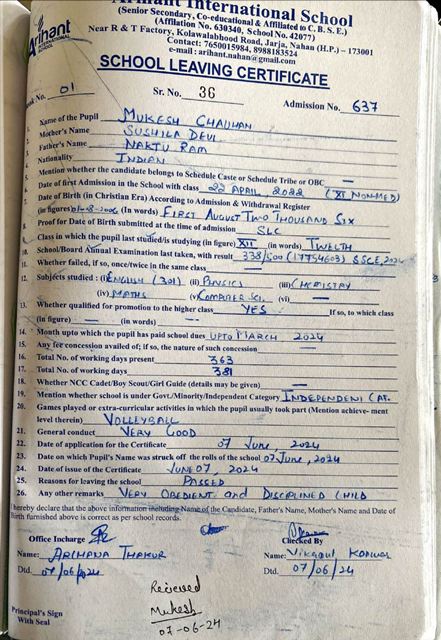 Arihant International School
(Senior Secondary, Co-educational & Affiliated to C. B. S. E.)
(Affiliation No. 630340, School No. 42077)
Near R & T Factory, Kolawalabhood Road, Jarja, Nahan (H.P.) – 173001
Contact: 7650015984, 8988183524
e-mail : arihant.nahan@gmail.com
Arihant
INTERNATIONAL SCHOOL
SCHOOL LEAVING CERTIFICATE
Book No. 01 Sr. No. 36 Admission No. 637
Name of the Pupil MUKESH CHAUHAN
Mother's Name SUSHILA DEVI
Father's Name NAKTU RAM
Nationality INDIAN
Mention whether the candidate belongs to Schedule Caste or Schedule Tribe or OBC —
Date of first Admission in the School with class 22 APRIL 2022 (XI NONMED)
Date of Birth (in Christian Era) According to Admission & Withdrawal Register
(in figures) 01-08-2006 (In words) FIRST AUGUST TWO THOUSAND SIX
8. Proof for Date of Birth submitted at the time of admission SLC
9. Class in which the pupil last studied/is studying (in figure) XII (in words) TWELTH
10. School/Board Annual Examination last taken, with result 338/500 (17754603) SSCE, 2024
11. Whether failed, if so, once/twice in the same class —
12. Subjects studied : (i) ENGLISH (301) (ii) PHYSICS (iii) CHEMISTRY
(iv) MATHS (v) COMPUTER SCI. (vi) —
13. Whether qualified for promotion to the higher class YES If so, to which class
(in figure) — (in words) —
14. Month upto which the pupil has paid school dues UPTO MARCH 2024
15. Any fee concession availed of; if so, the nature of such concession —
16. Total No. of working days present 363
17. Total No. of working days 381
18. Whether NCC Cadet/Boy Scout/Girl Guide (details may be given) —
19. Mention whether school is under Govt./Minority/Independent Category INDEPENDENT CAT.
20. Games played or extra-curricular activities in which the pupil usually took part (Mention achieve- ment
level therein) VOLLEYBALL
21. General conduct VERY GOOD
22. Date of application for the Certificate 07 June, 2024
23. Date on which Pupil's Name was struck off the rolls of the school 07 June, 2024
24. Date of issue of the Certificate JUNE 07, 2024
25. Reasons for leaving the school PASSED
26. Any other remarks VERY OBEDIENT and DISCIPLINED CHILD
I hereby declare that the above information including Name of the Candidate, Father's Name, Mother's Name and Date of
Birth furnished above is correct as per school records.
Office Incharge Checked By
Name: ARCHANA THAKUR Name:
Dtd. 07/06/2024 Dtd. 07/06/24
Recieved
Mukesh
07-06-24
Principal's Sign
With Seal